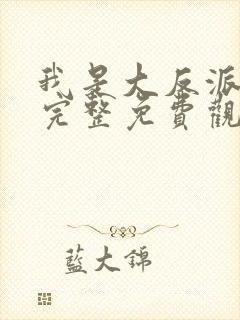 我是大反派
完整免費觀
藍大錦